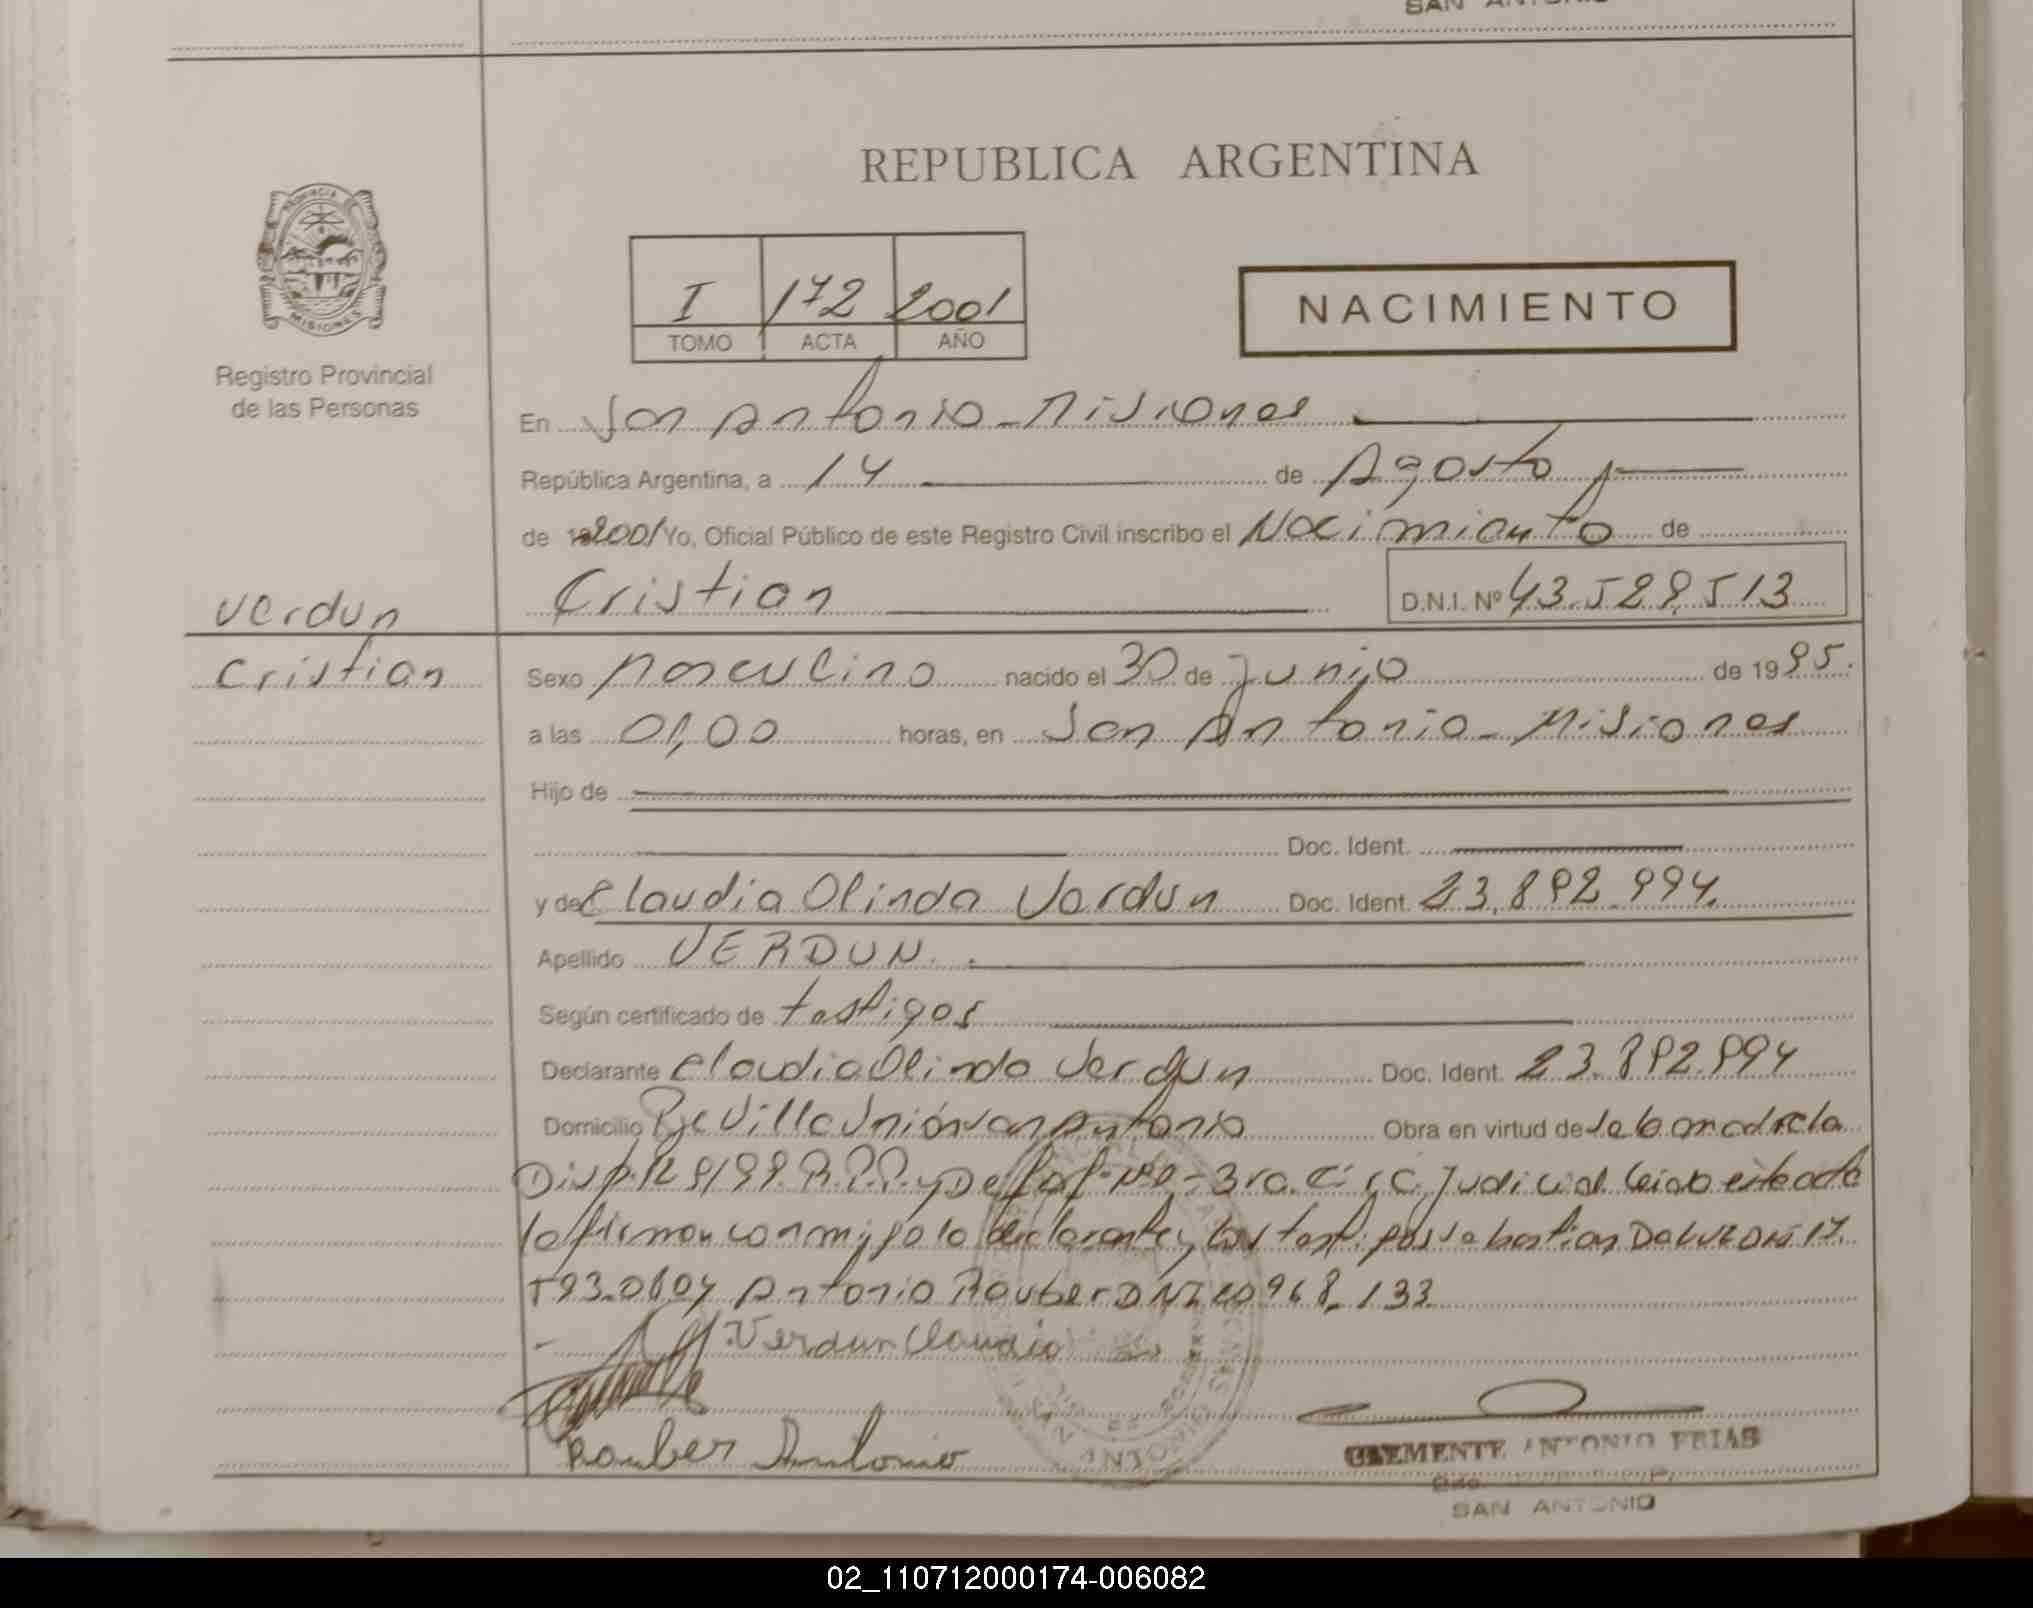 SAN ANTONIO
REPUBLICA ARGENTINA
PROVINCIA DE
MISIONES
Registro Provincial
de las Personas
I 172 2001
TOMO ACTA AÑO
NACIMIENTO
En San Antonio - Misiones
República Argentina, a 14 de Agosto
de 2001 Yo, Oficial Público de este Registro Civil inscribo el Nacimiento de
Verdun
Cristian
Cristian D.N.I. Nº 43.529.513
Sexo Masculino nacido el 30 de Junio de 1995.
a las 01,00 horas, en San Antonio - Misiones
Hijo de
Doc. Ident.
y de Claudia Olinda Verdun Doc. Ident. 23.892.994.
Apellido VERDUN.
Según certificado de testigos
Declarante Claudia Olinda Verdun Doc. Ident. 23.892.994
Domicilio Pje Villa Unión San Antonio Obra en virtud de
Disp. 129/99. R.P.P. y 3ra. Circ. Judicial Leida este acta
la firman conmigo la declarante y los testigos Sebastian DNI 17.
Antonio Rauber DNI 968.133
Verdun Claudia
Rauber Antonio
CLEMENTE ANTONIO FRIAS
SAN ANTONIO
02_110712000174-006082